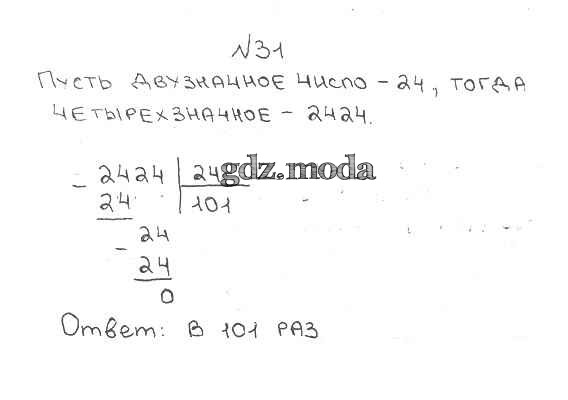 №31
Пусть двузначное число – 24, тогда
четырехзначное – 2424.
– 2424 | 24 gdz.moda
24 | 101
– 24
24
0
Ответ: в 101 раз